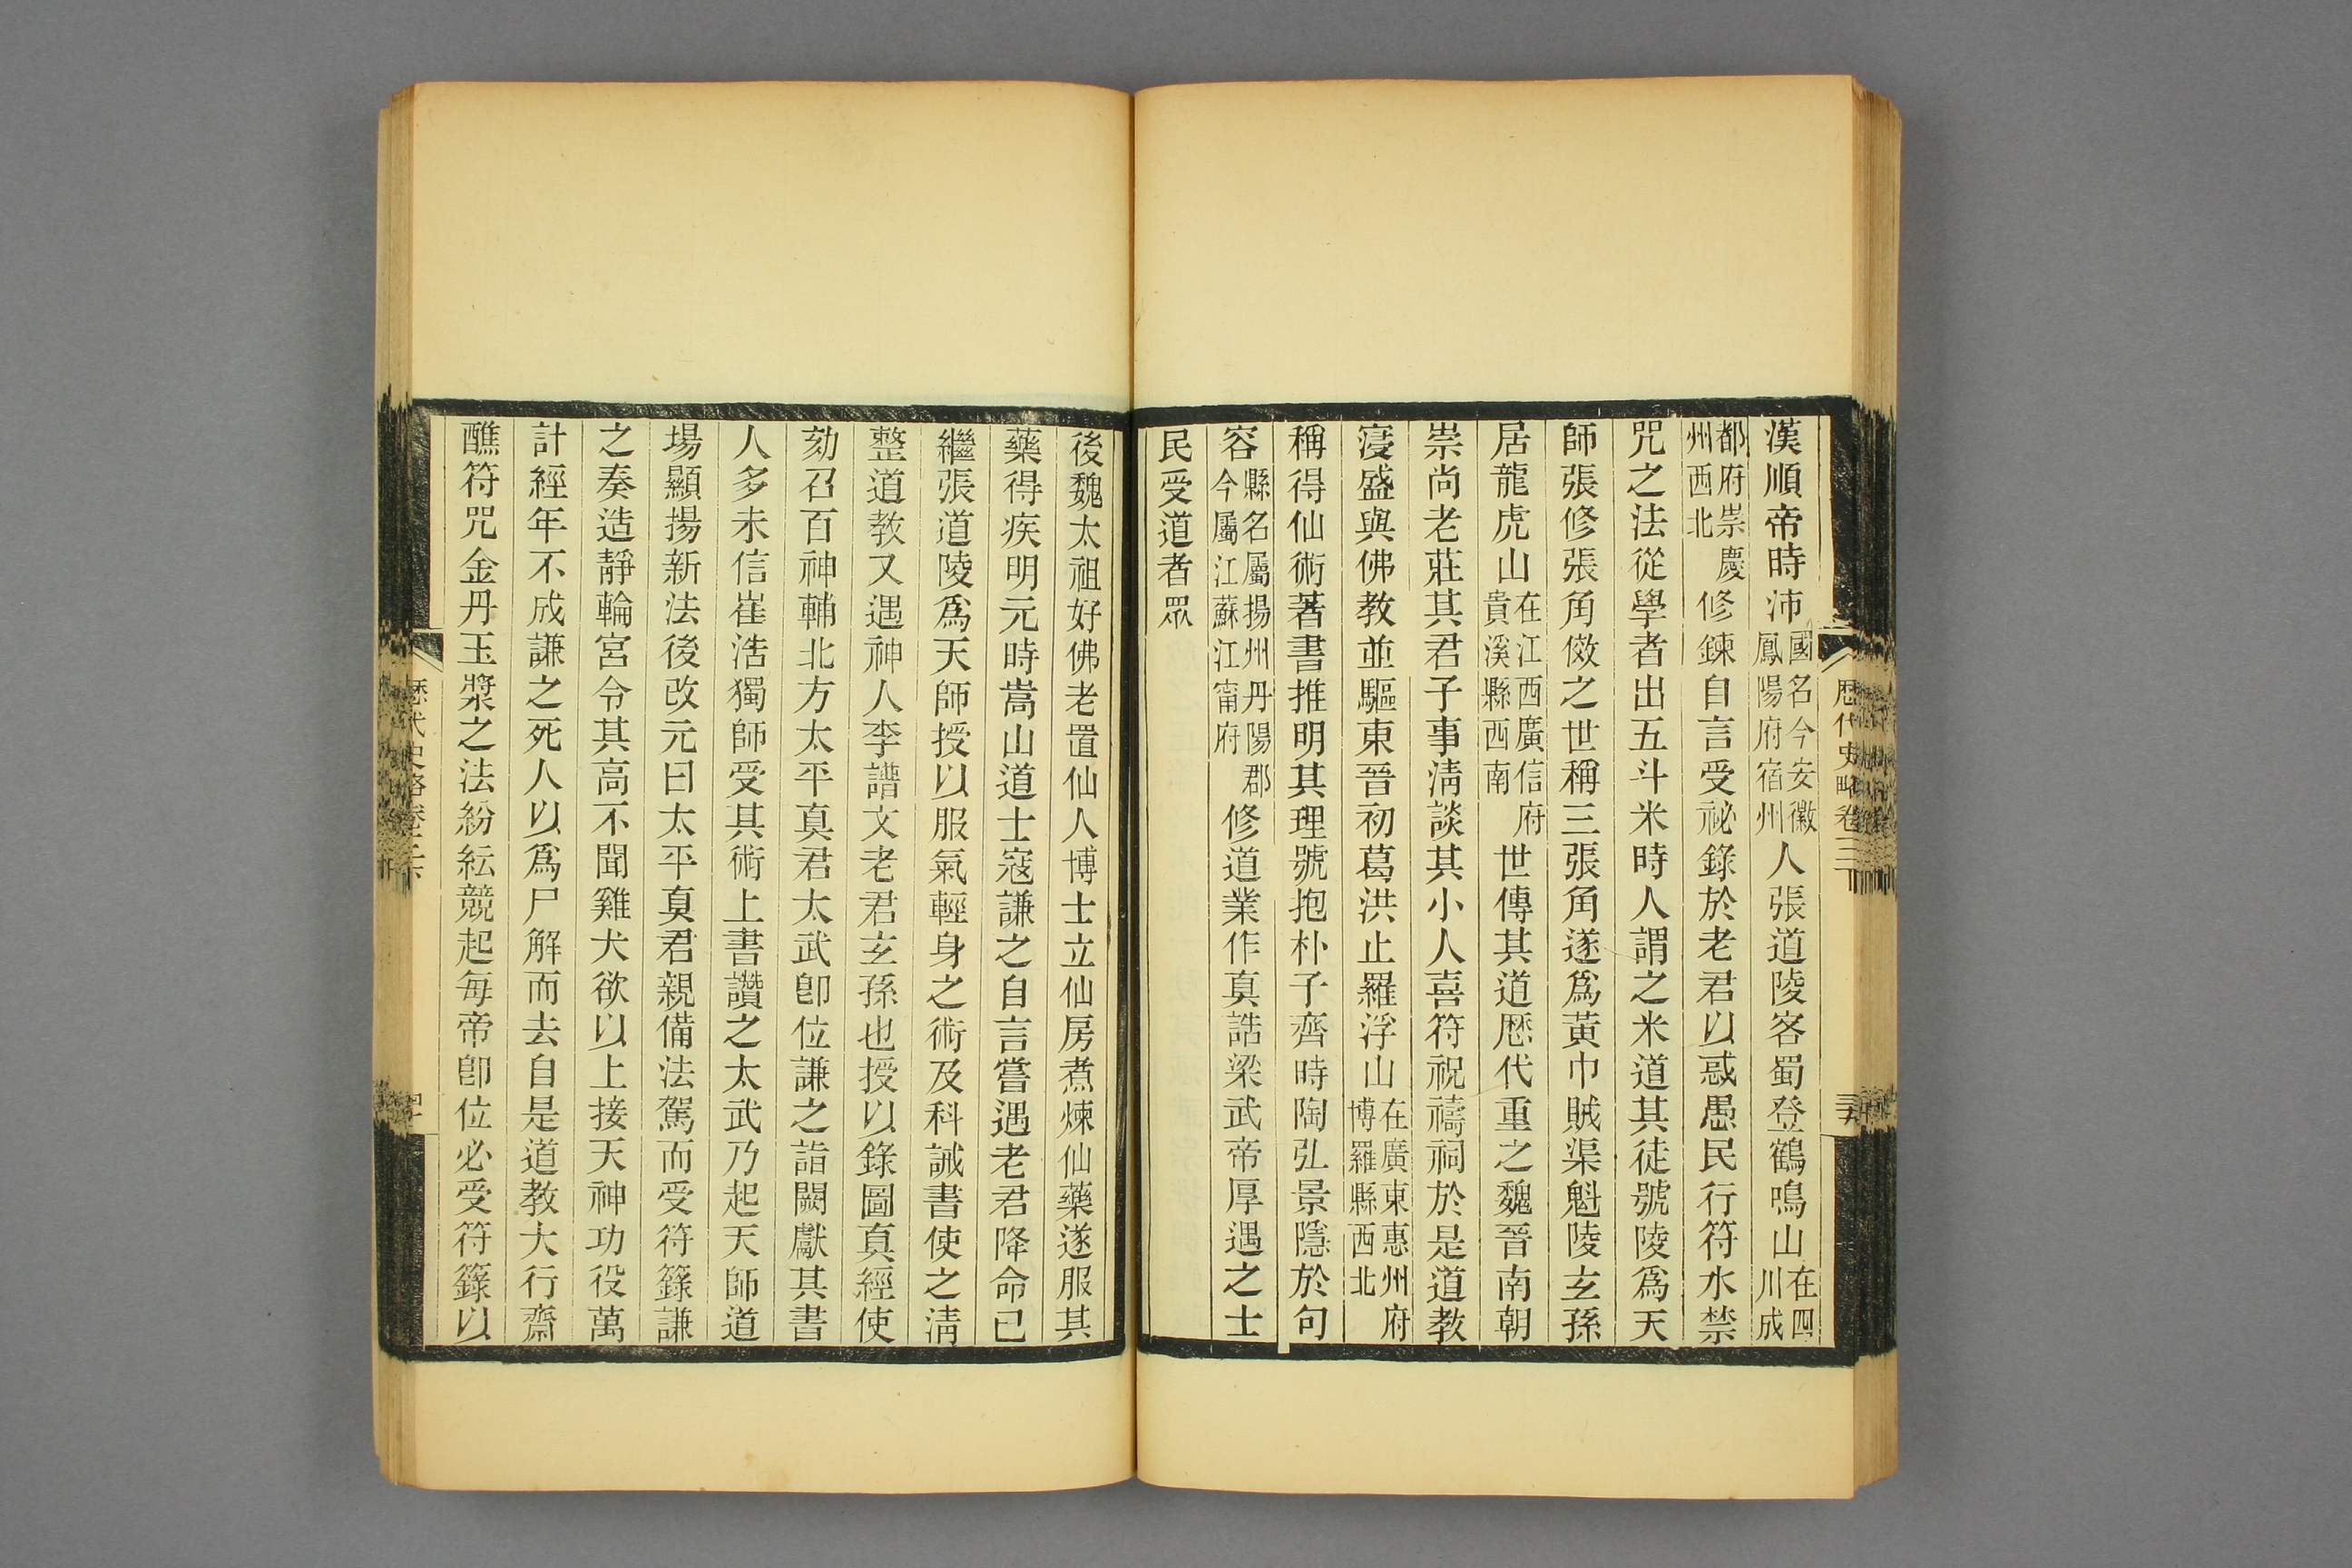 漢順帝時沛國名今安徽鳳陽府宿州人張道陵客蜀登鶴鳴山在四川成
都府崇慶州西北修鍊自言受祕錄於老君以惑愚民行符水禁
咒之法從學者出五斗米時人謂之米道其徒號陵爲天
師張修張角傚之世稱三張角遂爲黃巾賊渠魁陵玄孫
居龍虎山在江西廣信府貴溪縣西南世傳其道歷代重之魏晉南朝
崇尚老莊其君子事淸談其小人喜符祝禱祠於是道教
寖盛與佛教並驅東晉初葛洪止羅浮山在廣東惠州府博羅縣西北
稱得仙術著書推明其理號抱朴子齊時陶弘景隱於句
容縣名屬揚州丹陽郡今屬江蘇江甯府修道業作真誥梁武帝厚遇之士
民受道者眾
後魏太祖好佛老置仙人博士立仙房煮煉仙藥遂服其
藥得疾明元時嵩山道士寇謙之自言嘗遇老君降命己
繼張道陵爲天師授以服氣輕身之術及科誡書使之淸
整道教又遇神人李譜文老君玄孫也授以錄圖真經使
劾召百神輔北方太平真君太武卽位謙之詣闕獻其書
人多未信崔浩獨師受其術上書讚之太武乃起天師道
場顯揚新法後改元曰太平真君親備法駕而受符籙謙
之奏造靜輪宮令其高不聞雞犬欲以上接天神功役萬
計經年不成謙之死人以爲尸解而去自是道教大行齋
醮符咒金丹玉漿之法紛紜競起每帝卽位必受符籙以
歷代史略卷